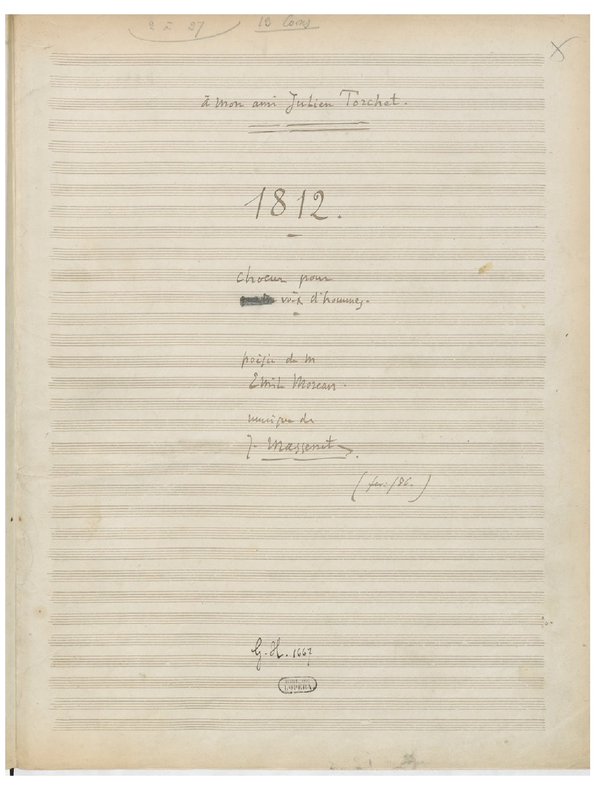 2 à 27
à mon ami Julien Torchet.
1812.
choeur pour
voix d'hommes.
poésie de M
Emile Moreau.
musique de
J. Massenet
G. H. 1667
L'OPERA